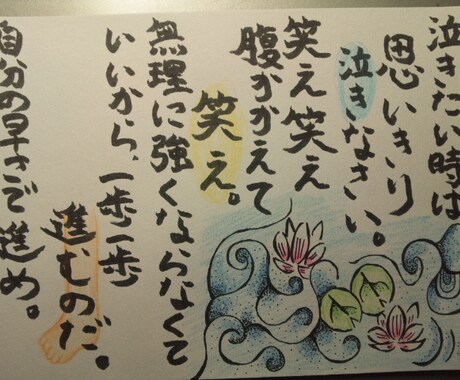 泣きたい時は
思いきり
泣きなさい。
笑え笑え
腹かかえて
笑え。
無理に強くならなくて
いいから、一歩一歩
進むのだ。
自分の早さで進め。